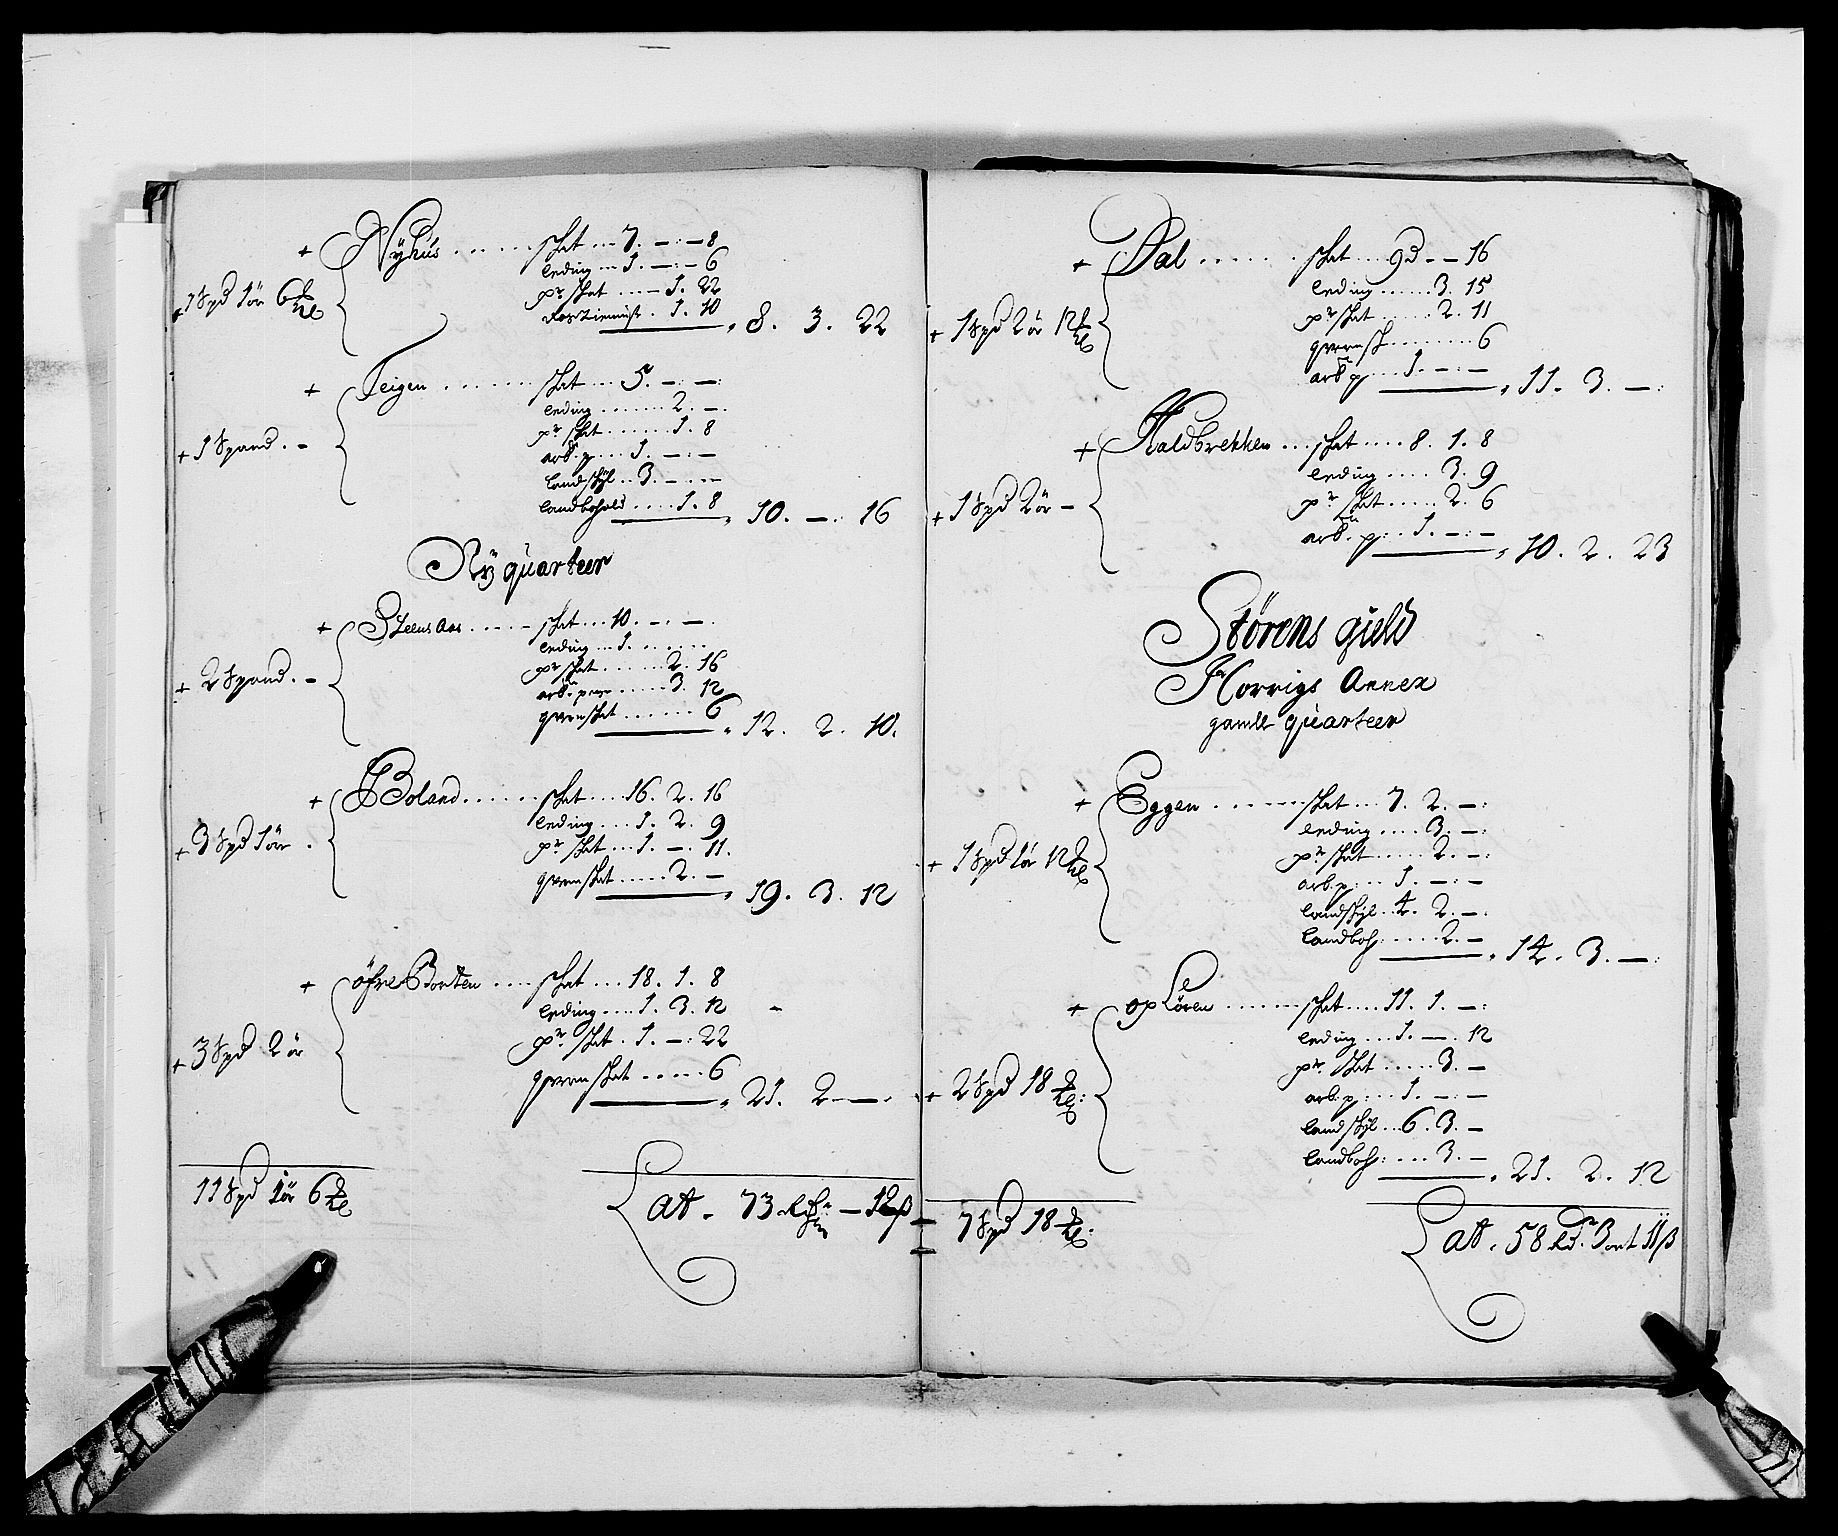 + Nÿhus ...... skat ... 7. – : – 8
leding ... 1. – : – 6
+ 1 Spd 1 ör 6 mkl
pr skat .... – 1. 22
rostienniste . 1. 10
8. 3. 22
+ Teigen ....... skat ... 5. – : – :
leding ....... 2. – .
+ 1 Spand . –
pr skat ...... 1. 8
arb. p ... 1. – : –
landskÿl .. 3. – . –
landbohold .... 1. 8
10. – : 16
Nÿ quarteer
+ Steens Aas ..... skat ... 10. – : – .
leding ... 1. ......
+ 2 Spand . –
pr skat ...... 2. 16
arb. penn ..... 3. 12
qvernskat ...... 6
12. 2. 10.
+ Boland ...... skat .... 16. 2. 16
leding ... 1. 2. 9
+ 3 Spd 1 ör .
pr skat ... 1. – : 11.
qvernskat ..... 2. –
19. 3. 12
+ öfre Borten .... skat ... 18. 1. 8
leding .... 1. 3. 12
+ 3 Spd 2 ör
pr skat . 1. – : 22
qvernskat ..... 6
21. 2 – .
11 Spd 1 ör 6 mkl
Latt . 73 Rdr – 12 ß
+ Dal ...... skat ... 9 d – – 16
leding ...... 3. 15
+ 1 Spd 2 ör 12 mkl
pr skat ..... 2. 11
qvernsk ........ 6
arb p ... 1. – : –
11. 3. – :
+ Haldbrekken ... skat .... 8. 1. 8
leding .... 3. 9
+ 1 Spd 2 ör –
pr skat ..... 2. 6
arb. p : . 1. – : –
10. 2. 23
Störens gield
Horrigs Annex
gamle quarteer
+ Eggen ....... skat ... 7. 2. – :
leding .... 3. – :
+ 1 Spd 1 ör 12 mkl
pr skat ..... 2. – :
arb. p : .. 1. – : –
landskÿl .. 4. 2. – :
landboh : .... 2. –
14. 3. – :
+ op Lören ...... skat .... 11. 1. – :
leding ... 1. – . 12
pr skat ..... 3. –
+ 2 Spd 18 mkl :
arb. p : .. 1. – : –
landskÿl .. 6. 3. –
landboh : .... 3. –
21. 2. 12
7 Spd 18 mkl :
Latt . 58 Rd . 3 ort 11 ß